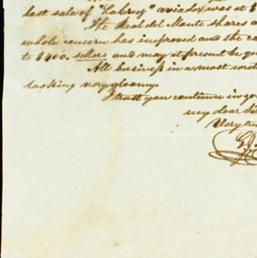 last sale of "Fabrey" aviador was at $
The Real del Monte shares a
whole concern has improved and the ca
to $400. sellers and may at present be qu
All business in a most
looking very gloomy.
I trust you continue in go
my dear Si
Very tru